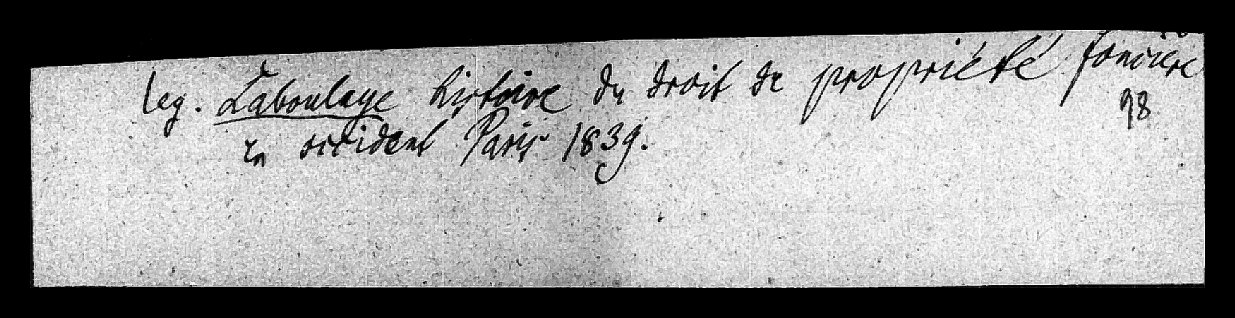 leg. Laboulaye histoire du droit de propriété foncière
98
en occident Paris 1839.